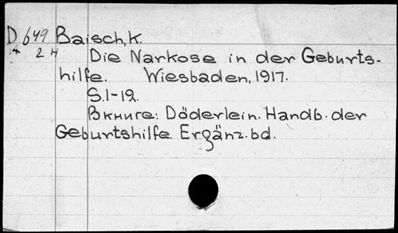 D 649 Baisch, K.
2 H Die Narkose in der Geburts-
hilfe. Wiesbaden, 1917.
S. 1-19.
В книге: Döderlein. Handb. der
Geburtshilfe. Ergänz. bd.